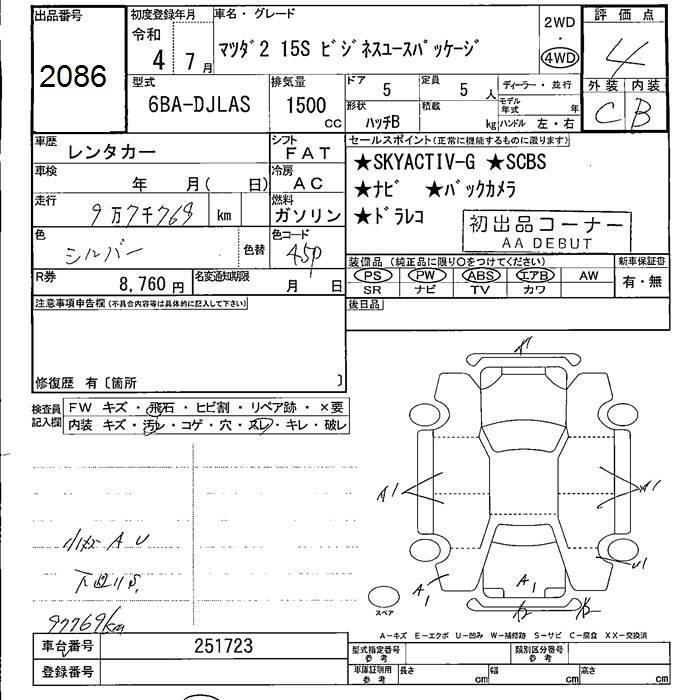 出品番号
2086
初度登録年月
令和
4 7月
車名・グレード
マツダ2 15S ビジネスユースパッケージ
2WD
・
4WD
評価点
4
外装 内装
C B
型式
6BA-DJLAS
排気量
1500
cc
ドア 5
定員 5 人
形状 ハッチB
積載 kg
ディーラー・並行
モデル年式 年
ハンドル 左・右
車歴
レンタカー
シフト
FAT
車検
年 月( 日)
冷房
AC
走行
9万7千768 km
燃料
ガソリン
色
シルバー
色替
色コード
45P
R券
8,760円
名変通知期限
月 日
セールスポイント(正常に機能するものに限ります)
★SKYACTIV-G ★SCBS
★ナビ ★バックカメラ
★ドラレコ
初出品コーナー
AA DEBUT
装備品(純正品に限り○をつけてください)
PS PW ABS エアB AW
SR ナビ TV カワ
新車保証書
有・無
後日品
注意事項申告欄(不具合内容等は具体的に記入して下さい)
修復歴 有〔箇所 〕
検査員
記入欄
FW キズ・飛石・ヒビ割・リペア跡・×要
内装 キズ・汚レ・コゲ・穴・スレ・キレ・破レ
小キズ A U
97769km
A1
A1
A1
A1
U1
スペア
A−キズ E−エクボ U−凹み W−補修跡 S−サビ C−腐食 XX−交換済
車台番号
251723
登録番号
型式指定番号
参考
類別区分番号
参考
車庫証明用
参考
長さ cm
幅 cm
高さ cm